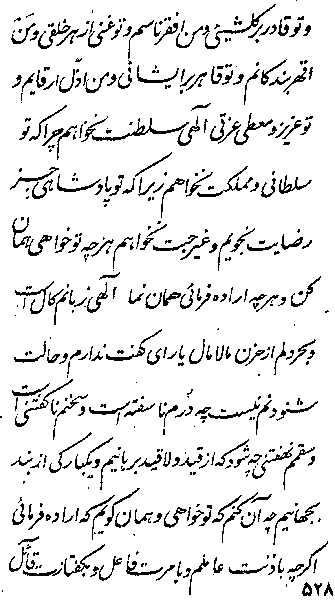 و تو قادر بر کلّشیئی و من افقر ناسم و تو غنی از هر خلقی و من
اقهر بندگانم و تو قاهر بر ایشانی و من اذلّ ارقایم و
تو عزیز و معطی عزتی الهی سلطنت نخواهم چرا که تو
سلطانی و مملکت نخواهم زیرا که تو پادشاهی جز
رضایت نجویم و غیر حبت نخواهم هرچه تو خواهی همان
کن و هرچه اراده فرمائی همان نما الهی زبانم کال است
و بحر دلم از حزن مالامال یارای گفتنت ندارم و حالت
شنودنم نیست چه درّم ناسفته است و سخنم ناگفتنی است
و سقمم نهفتنی چه شود که از قید و لاقید برهانیم و یکبارگی از بند
بجهانیم چه آن کنم که تو خواهی و همان گویم که اراده فرمائی
اگرچه باذنت عاملم و بامرت فاعل و بگفتارت قائل
۵۲۸